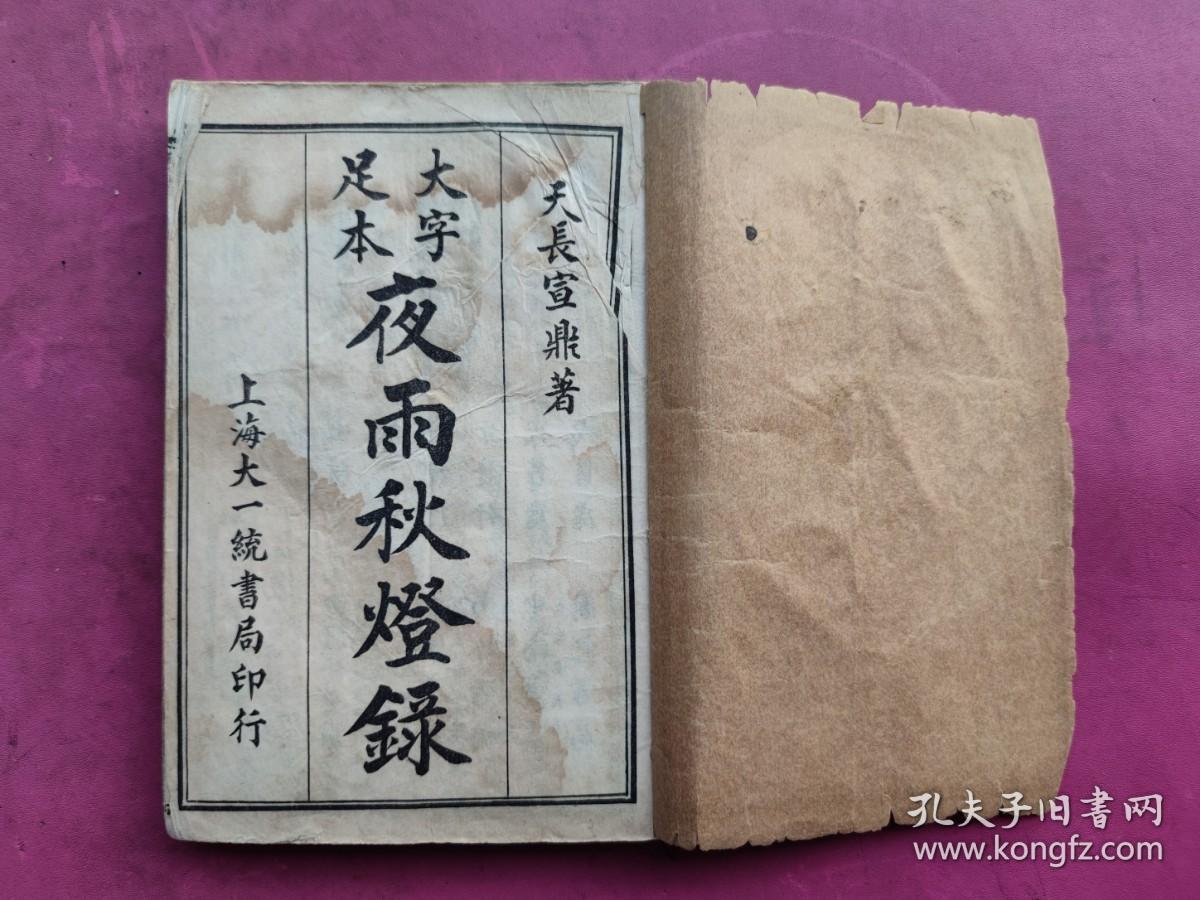 天長宣鼎著
大字
足本
夜雨秋燈錄
上海大一統書局印行
孔夫子旧书网
www.kongfz.com